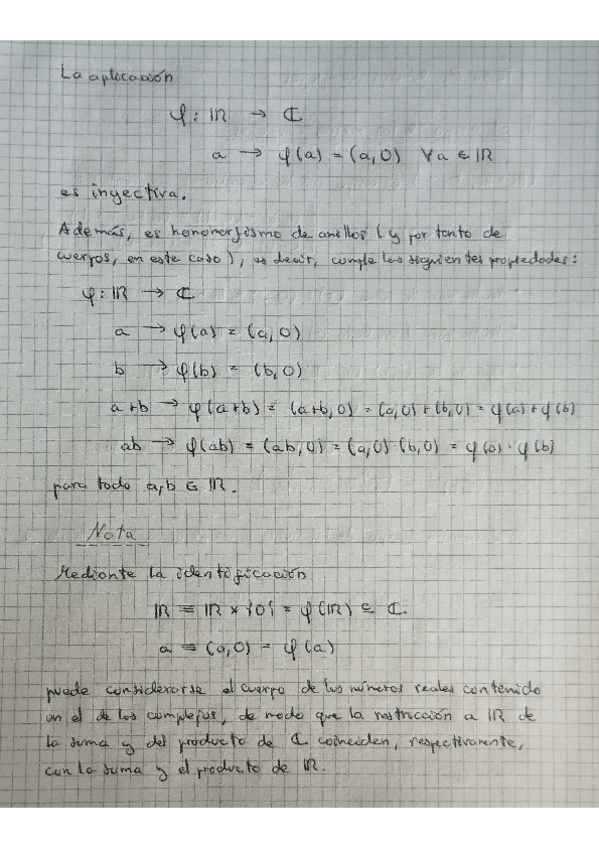 La aplicación
φ: ℝ → ℂ
a → φ(a) = (a,0) ∀a ∈ ℝ
es inyectiva.
Además, es homomorfismo de anillos (y por tanto de
cuerpos, en este caso), es decir, cumple las siguientes propiedades:
φ: ℝ → ℂ
a → φ(a) = (a,0)
b → φ(b) = (b,0)
a+b → φ(a+b) = (a+b,0) = (a,0)+(b,0) = φ(a)+φ(b)
ab → φ(ab) = (ab,0) = (a,0)·(b,0) = φ(a)·φ(b)
para todo a,b ∈ ℝ.
Nota
Mediante la identificación
ℝ ≡ ℝ×{0} = φ(ℝ) ⊆ ℂ
a ≡ (a,0) = φ(a)
puede considerarse el cuerpo de los números reales contenido
en el de los complejos, de modo que la restricción a ℝ de
la suma y del producto de ℂ coinciden, respectivamente,
con la suma y el producto de ℝ.